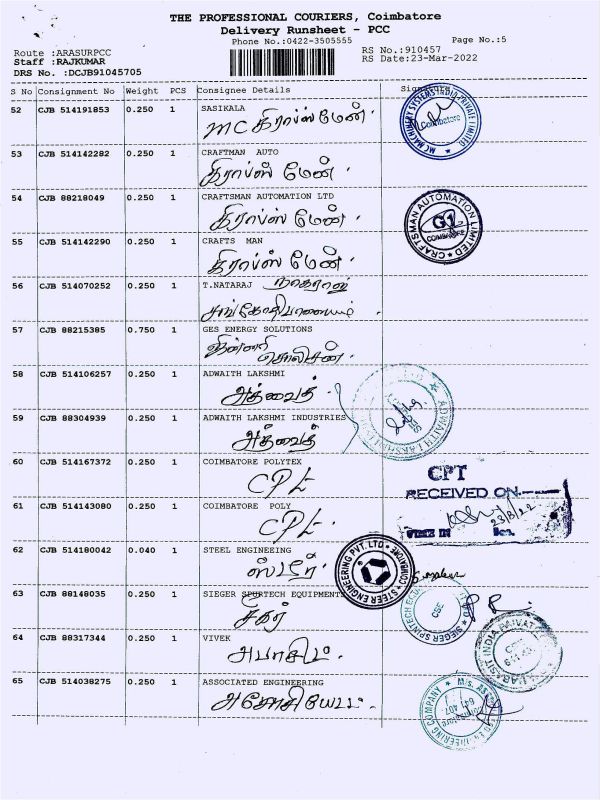 THE PROFESSIONAL COURIERS, Coimbatore
Delivery Runsheet - PCC
Phone No.:0422-3505555
Page No.:5
Route :ARASURPCC
RS No.:910457
Staff :RAJKUMAR
RS Date:23-Mar-2022
DRS No. :DCJB91045705
S No Consignment No Weight PCS Consignee Details
52 CJB 514191853 0.250 1 SASIKALA
MC கிராப்ஸ் மேன்.
53 CJB 514142282 0.250 1 CRAFTMAN AUTO
கிராப்ஸ் மேன்.
54 CJB 88218049 0.250 1 CRAFTSMAN AUTOMATION LTD
கிராப்ஸ் மேன்.
CRAFTSMAN AUTOMATION LIMITED
COIMBATORE
55 CJB 514142290 0.250 1 CRAFTS MAN
கிராப்ஸ் மேன்.
56 CJB 514070252 0.250 1 T.NATARAJ நாகராஜ்
57 CJB 88215385 0.750 1 GES ENERGY SOLUTIONS
58 CJB 514106257 1 ADWAITH LAKSHMI
அத்வைத்
59 CJB 88304939 0.250 1 ADWAITH LAKSHMI INDUSTRIES
அத்வைத்
60 CJB 514167372 0.240 1 COIMBATORE POLYTEX
CPL
CPT
RECEIVED ON
61 CJB 514143080 0.250 1 COIMBATORE POLY
CPL
23/3/22
62 CJB 514180042 0.040 1 STEEL ENGINEEING
ஸ்டீர்.
STEER ENGINEERING PVT. LTD
63 CJB 88148035 0.250 1 SIEGER SPURTECH EQUIPMENT
சீகர்
64 CJB 88317344 0.250 1 VIVEK
65 CJB 514038275 0.250 1 ASSOCIATED ENGINEERING
அசோசியேட்.